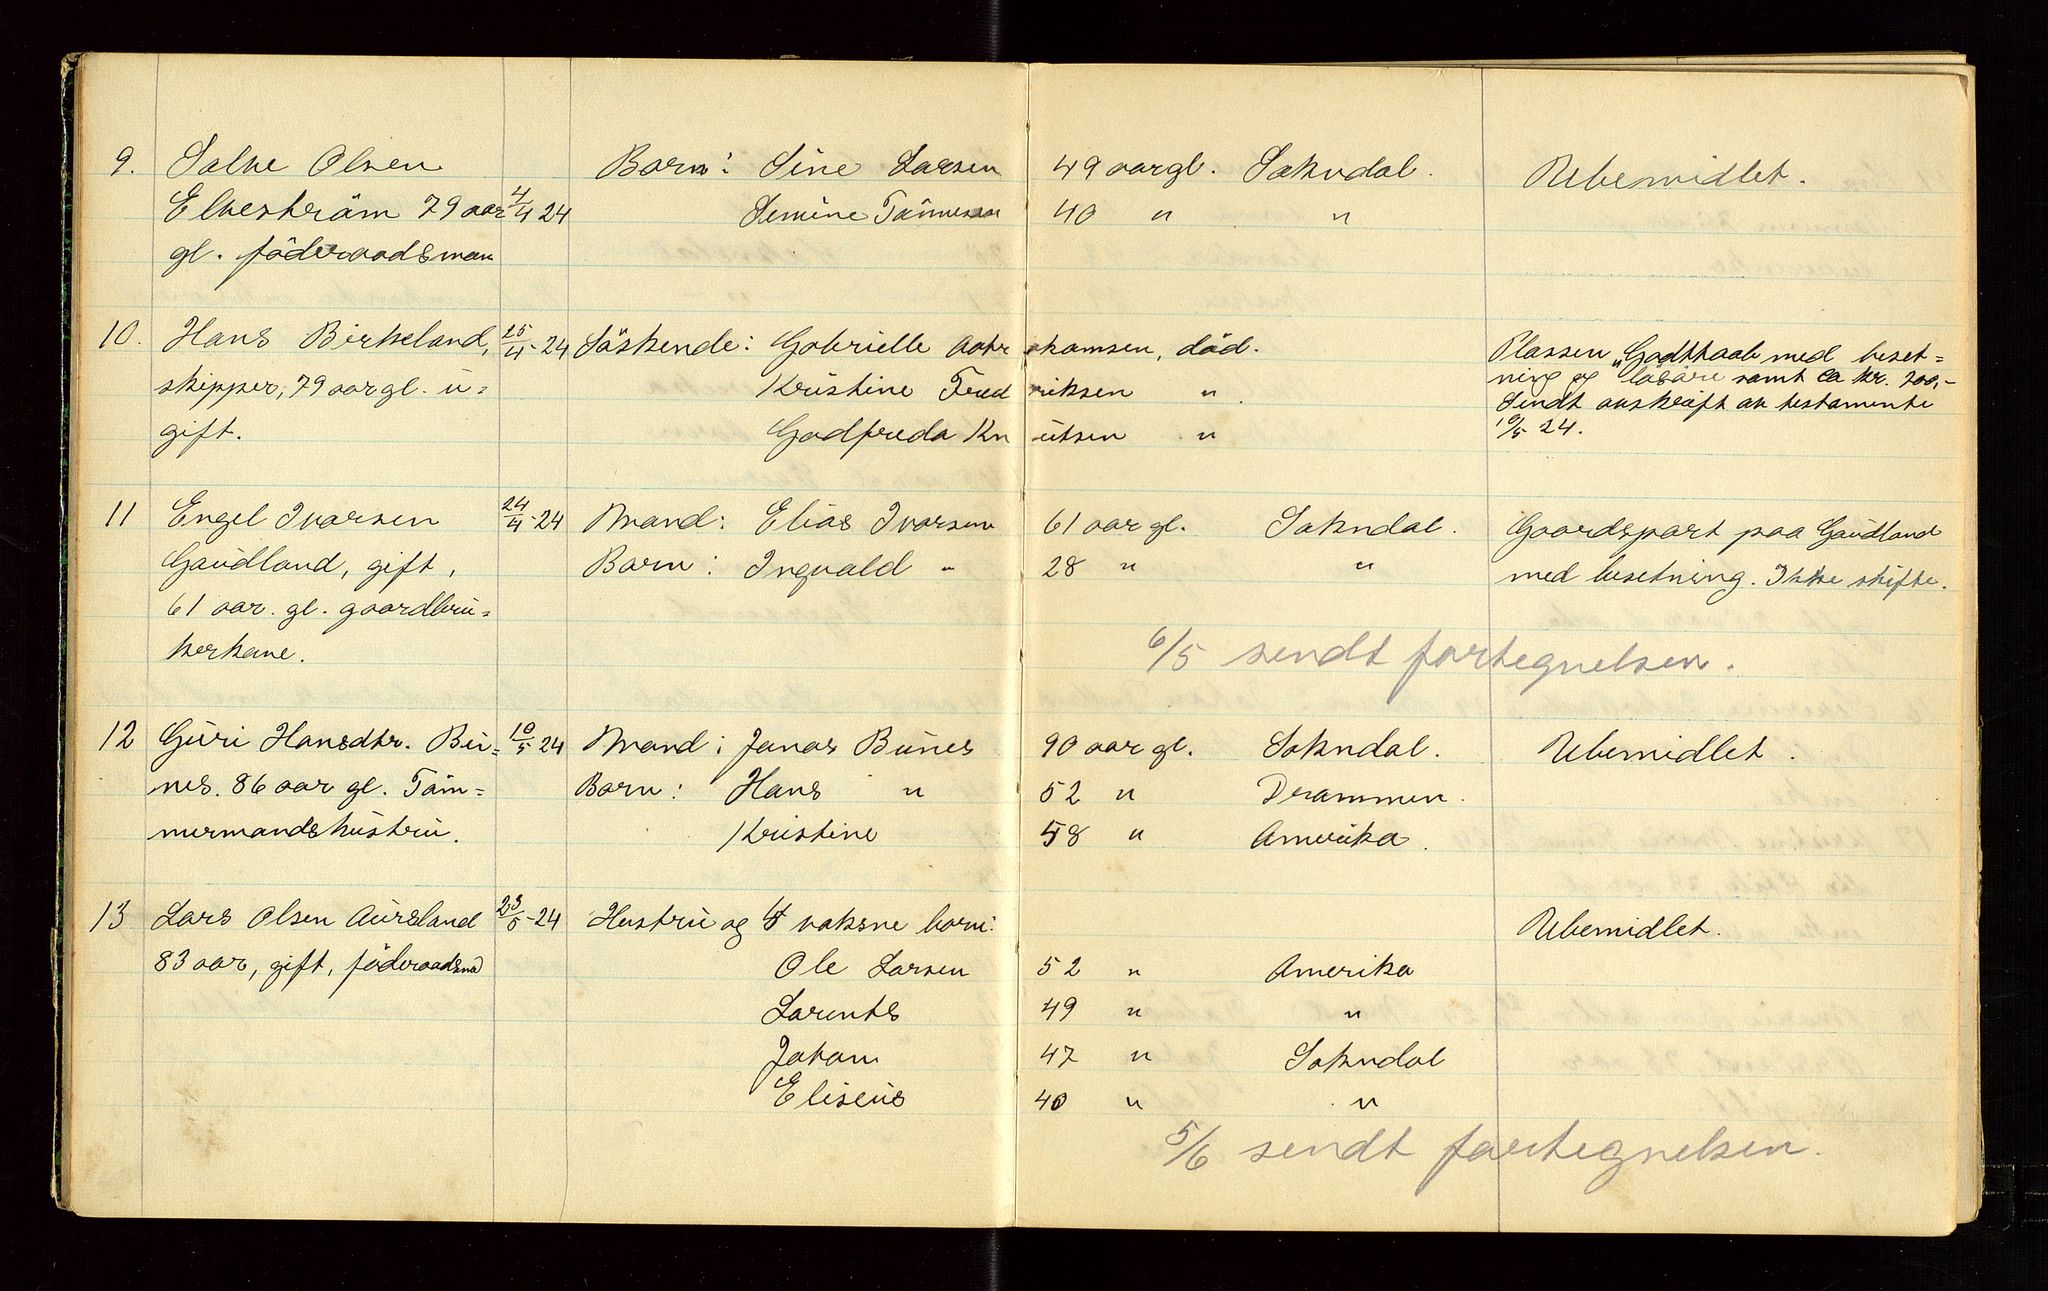 9. Salve Olsen 4/4 24 Barn: Sine Larsen 49 aar gl. Sokndal. Ubemidlet.
Elvestrøm 79 aar Semine Tønnesen 40 " "
gl. föderaadsman
10. Hans Birkeland, 25/4-24 Söskende: Gabrielle Aabrahamsen, död. Plassen "Godthaab" med beset=
skipper, 79 aar gl. u= Kristine Fredriksen " ning og lösöre samt ca kr. 700,-
gift. Godfreda Knutsen " Sendt avskrift av testamente
10/5 24.
11 Engel Ivarsen 24/4-24 Mand: Elias Ivarsen 61 aar gl. Sokndal. Gaardspart paa Gaudland
Gaudland, gift, Barn: Ingvald " 28 " " med besetning. Ikke skifte.
61 aar. gl. gaardbru=
kerkone. 6/5 sendt fortegnelsen.
12 Guri Hansdtr. Bu= 10/5 24 Mand: Jonas Bunes 90 aar gl. Sokndal. Ubemidlet.
nes. 86 aar gl. Töm= Barn: Hans " 52 " Drammen.
mermandshustru. Kristine 58 " Amerika.
13 Lars Olsen Aursland 23/5-24 Hustru og 4 voksne barn: Ubemidlet.
83 aar, gift, föderaadsmd Ole Larsen 52 " Amerika
Larents 49 " "
Johan 47 " Sokndal
Eliseus 40 " "
5/6 sendt fortegnelsen.